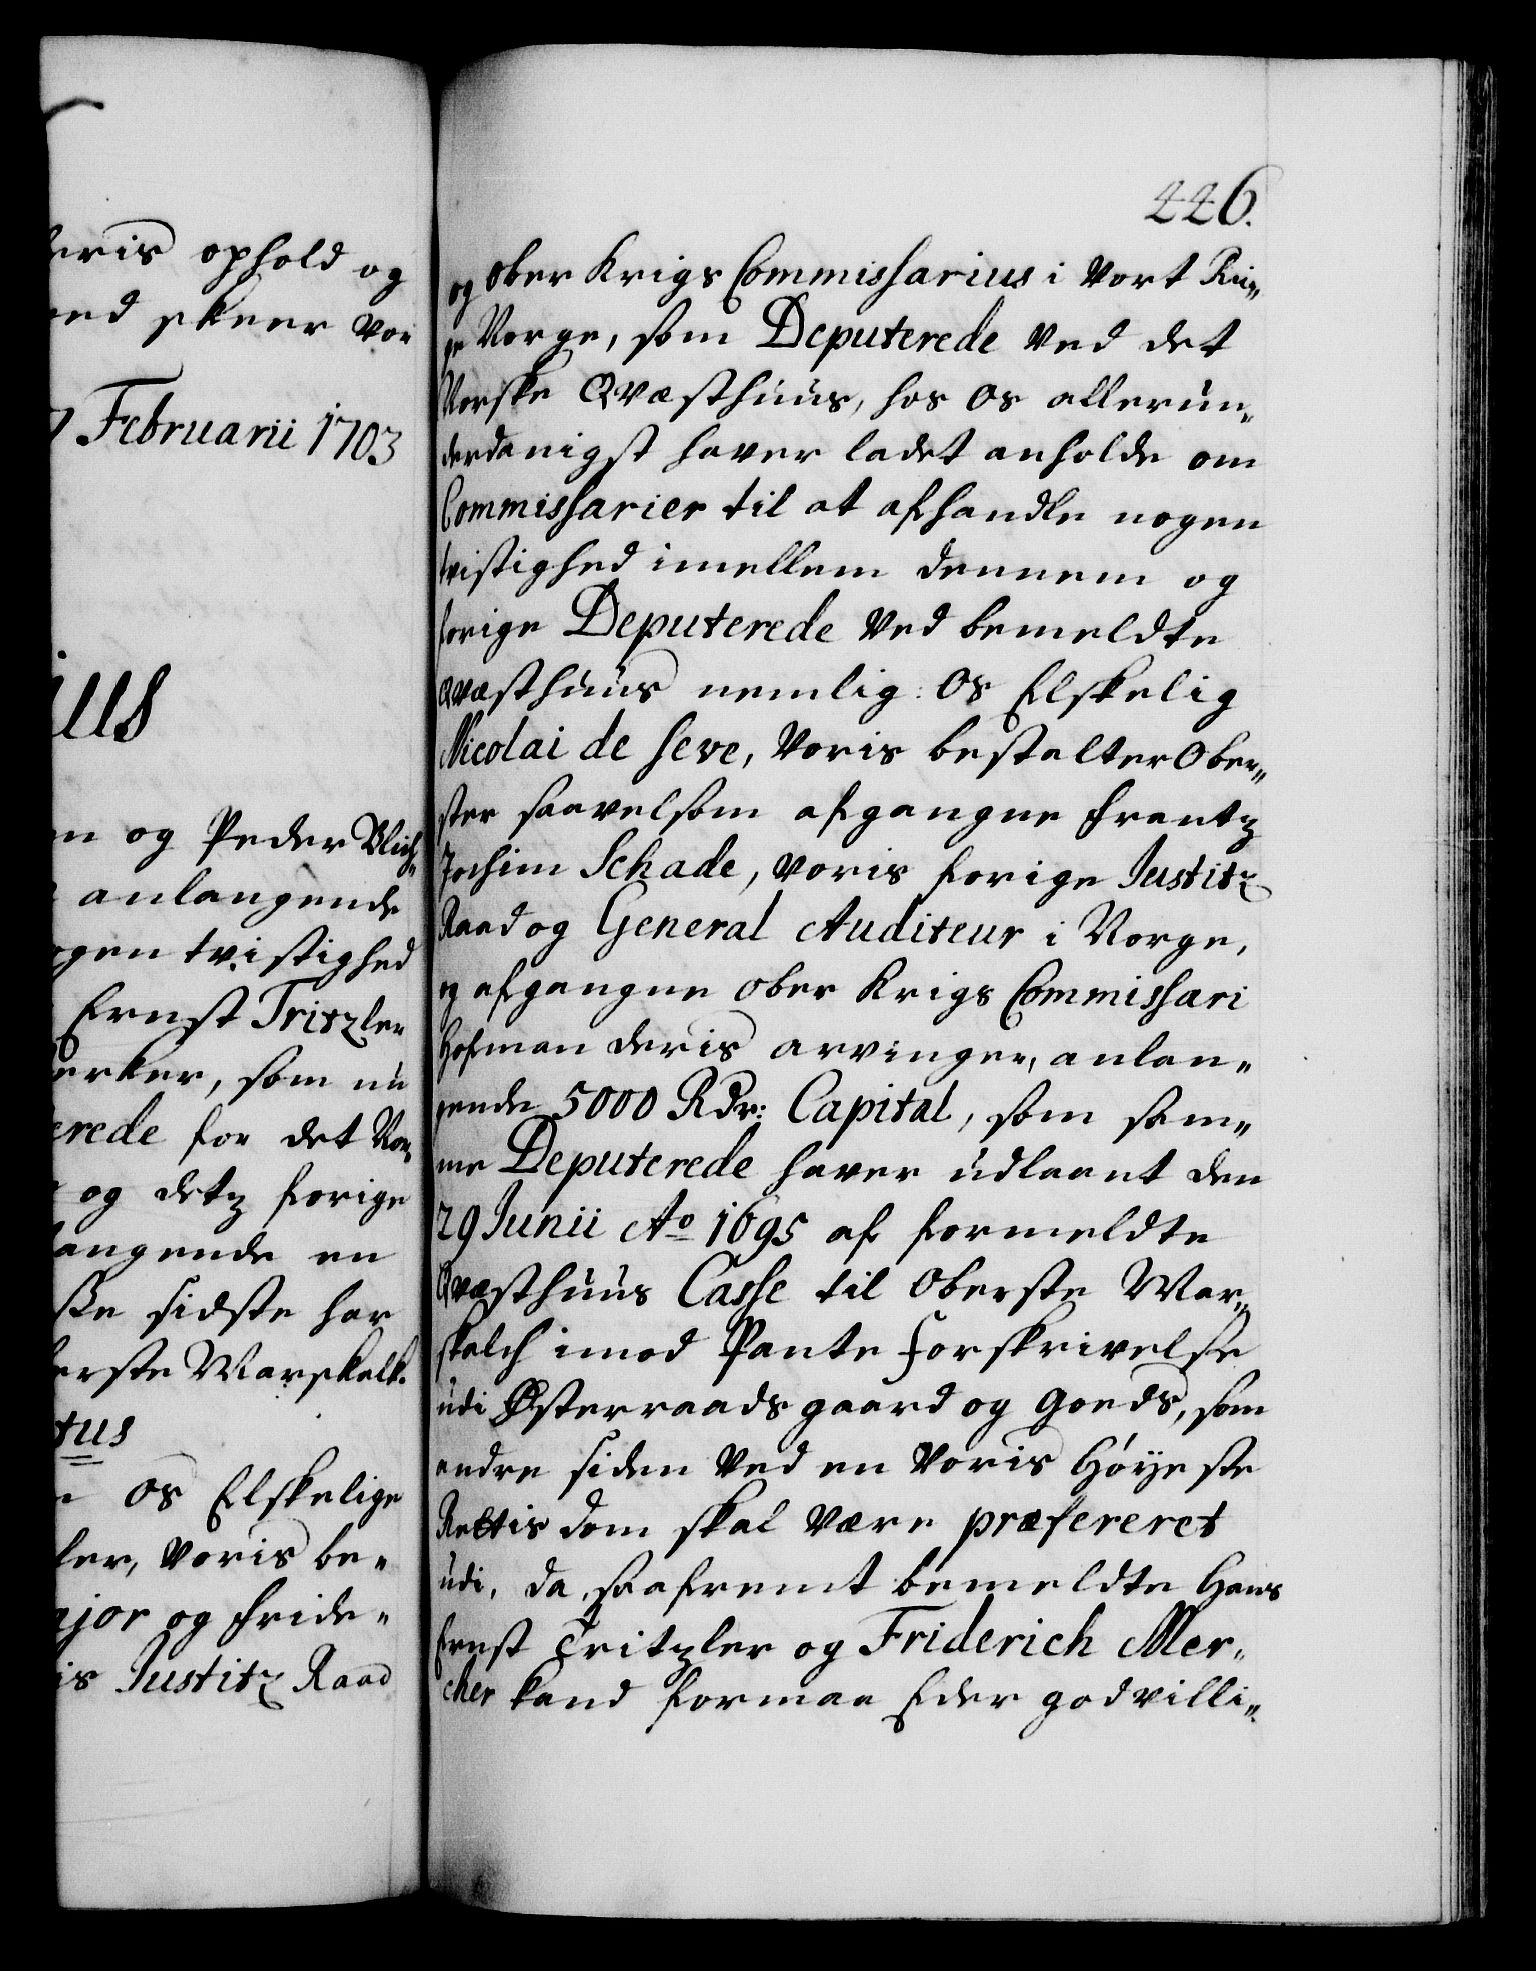 eris ophold og
ed skeer vor
7 Februarii 1703
ius
n og Peder Blich„
anlangende
ogen tvistighed
Ernst Tritzler
erker, som nu
erede for det Nor„
og detz forige
langende en
ske sidste har
erste Marskalk.
tus
Os Elskelige
ler, Voris be„
ajor og Fride„
is Justitz Raad
446.
og Ober Krigs Commissarius i Vort Rii„
ge Norge, som Deputerede Ved det
Norske Qvæsthuus, hos Os allerun„
derdanigst haver ladet anholde om
Commissarier til at afhandle nogen
tvistighed imellem dennem og
forige Deputerede Ved bemeldte
Qvæsthuus nemlig: Os Elskelig
Nicolai de Seve, Voris bestalter Ober„
ster saavelsom afgangne Frantz
Jochim Schade, voris forige Justitz
Raad og General Auditeur i Norge,
og afgangne Ober Krigs Commissari
Hofman deris arvinger, anlan„
gende 5000 Rdr: Capital, som sam„
me Deputerede haver udlaant den
29 Junii Ao 1695 af formeldte
Qvæsthuus Casse til Oberste Mar„
skalch imod Pante Forskrivelse
udi Østerraads gaard og Goeds, som
andre siden Ved en Voris Høyeste
Rettis dom skal være præfereret
udi, da, saafremt bemeldte Hans
Ernst Tritzler og Friderich Mer„
cher kand formaa Eder godvilli„